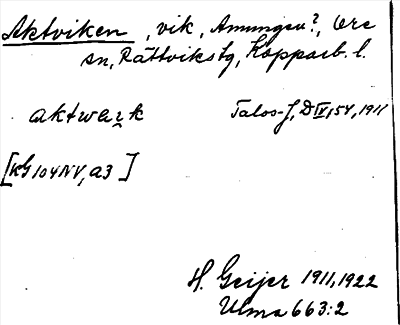 Aktviken, vik, Amungen?, Ore
sn, Rättvikstg, Kopparb. l.
aktwaık Talos-J, D IV, 54, 1911
[KG 104 NV, a3]
H. Geijer 1911, 1922
Ulma 663:2